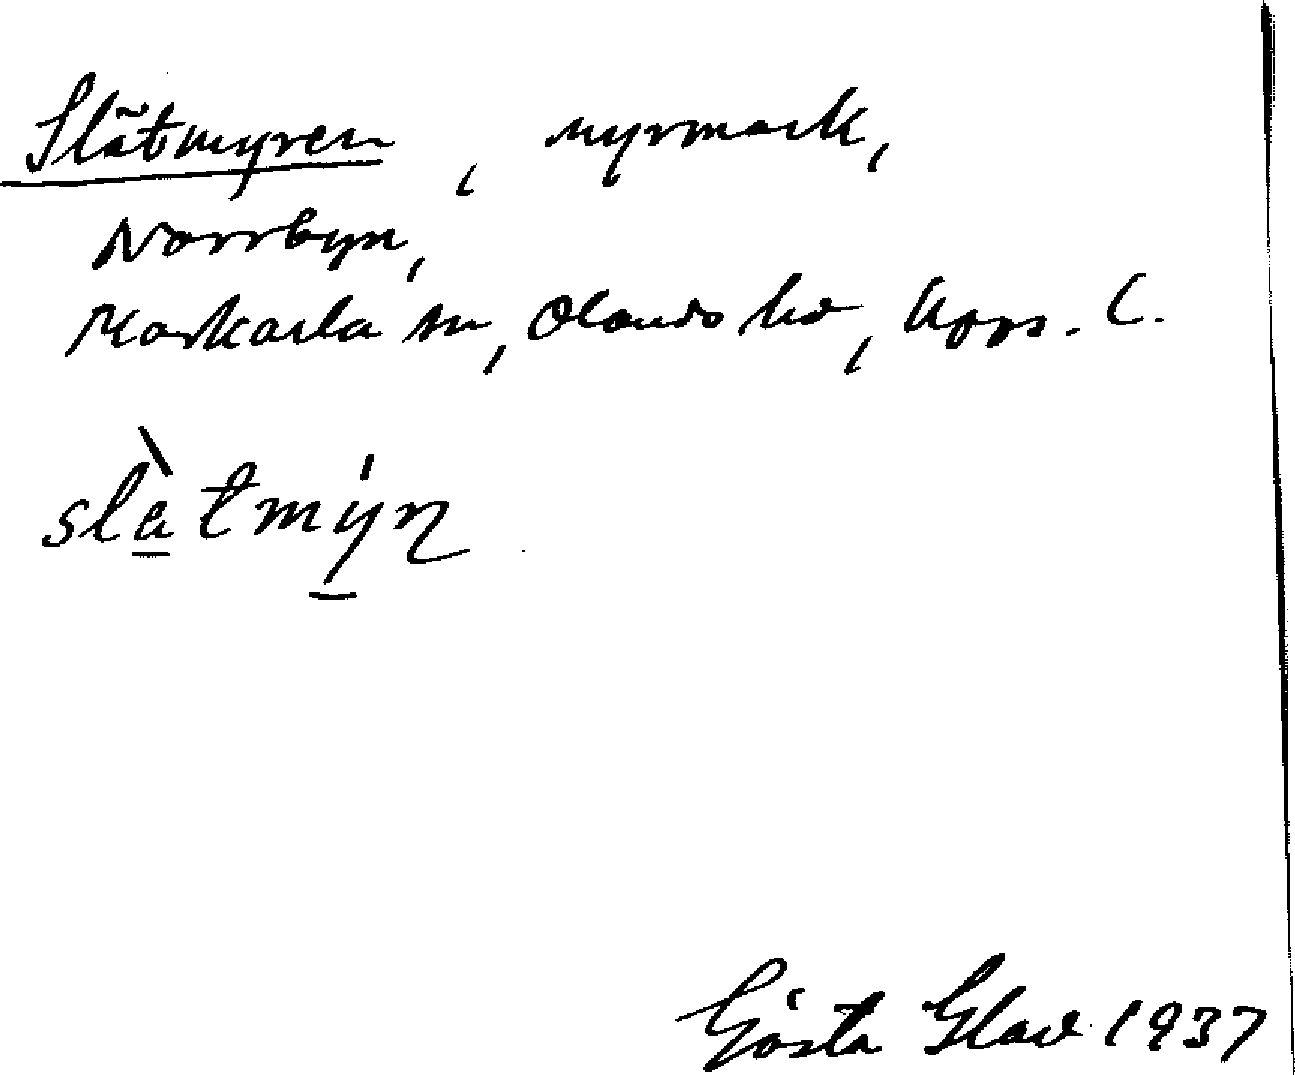 Slätmyren, myrmark,
Norrbyn,
Morkarla sn, Olands hd, Upps. l.
slàtmýn
Gösta Glad 1937